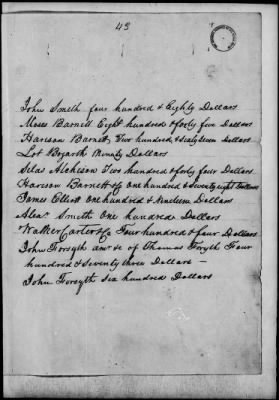 43
John Smith four hundred & Eighty Dollars
Moses Barnett Eight hundred & forty five Dollars
Harison Barnett Two hundred & Sixty Seven Dollars
Lot Bozarth Ninety Dollars
Silas Two hundred & forty four Dollars
Harison Barnett & Co one hundred & Seventy eight Dollars
James Elliott One hundred & Nineteen Dollars
Alexr Smith One hundred Dollars
Walker Carter & Co Four hundred & four Dollars
John Forsyth & of Thomas Forsyth Four
hundred & Seventy three Dollars —
John Forsyth Six hundred Dollars